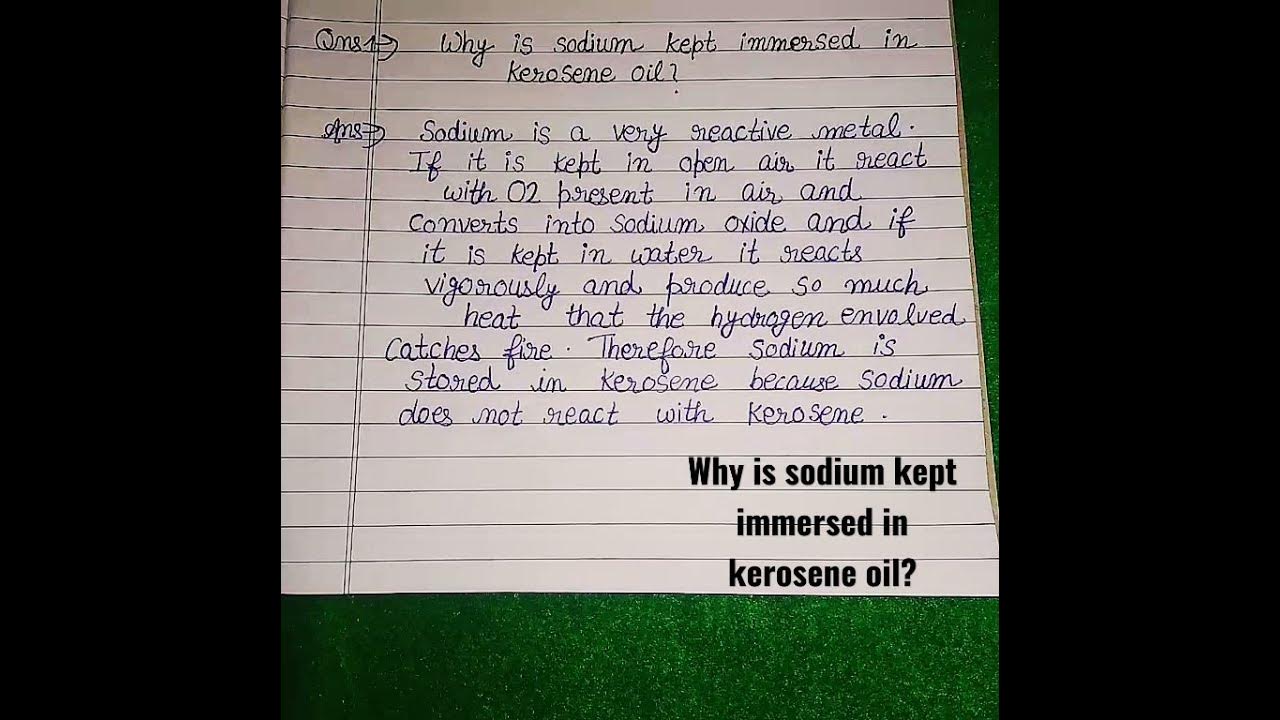 Qns 1⇒ Why is sodium kept immersed in
kerosene oil?
Ans⇒ Sodium is a very reactive metal.
If it is kept in open air it react
with O2 present in air and
Converts into sodium oxide and if
it is kept in water it reacts
vigorously and produce so much
heat that the hydrogen envolved
Catches fire. Therefore sodium is
stored in kerosene because sodium
does not react with kerosene.
Why is sodium kept
immersed in
kerosene oil?